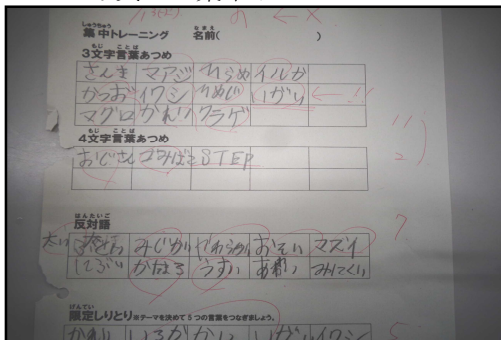 集中トレーニング 名前( )
3文字言葉あつめ
さんま マアジ ひらめ イルカ
かつお イワシ ひめじ いがい
マグロ かれい クラゲ
4文字言葉あつめ
おじさん ごみばこ STEP
反対語
太い みじかい やわらかい おそい マズイ
しぶい うすい みにくい
限定しりとり※テーマを決めて5つの言葉をつなぎましょう。
かれい いるか かい いがい イワシ